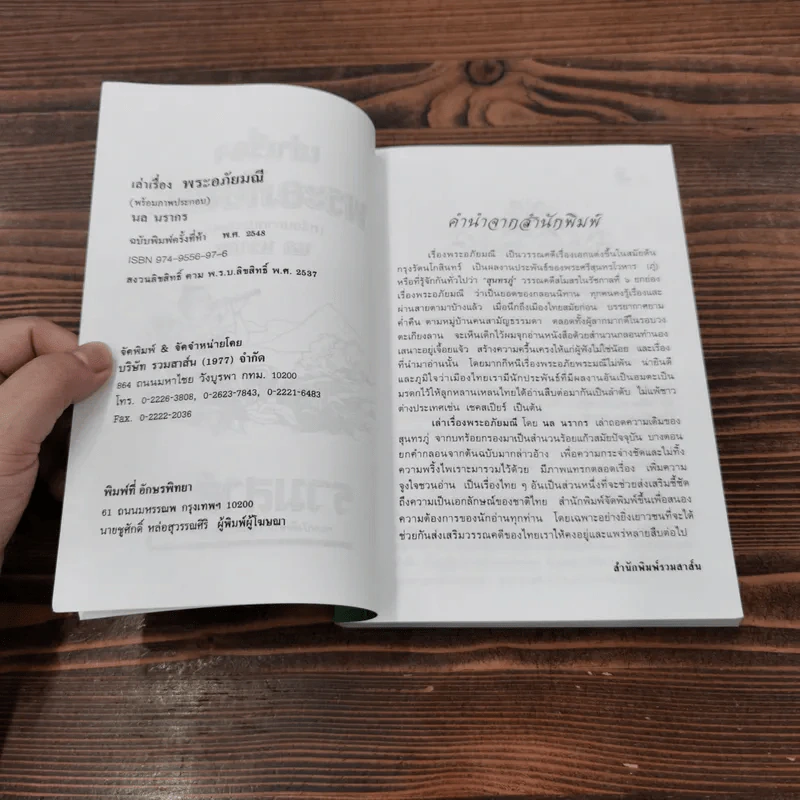 เล่าเรื่อง พระอภัยมณี
(พร้อมภาพประกอบ)
นล นรากร
ฉบับพิมพ์ครั้งที่ห้า พ.ศ. 2548
ISBN 974-9556-97-6
สงวนลิขสิทธิ์ ตาม พ.ร.บ.ลิขสิทธิ์ พ.ศ. 2537
จัดพิมพ์ & จัดจำหน่ายโดย
บริษัท รวมสาส์น (1977) จำกัด
864 ถนนมหาไชย วังบูรพา กทม. 10200
โทร. 0-2226-3808, 0-2623-7843, 0-2221-6483
Fax. 0-2222-2036
พิมพ์ที่ อักษรพิทยา
61 ถนนมหรรณพ กรุงเทพฯ 10200
นายชูศักดิ์ หล่อสุวรรณศิริ ผู้พิมพ์ผู้โฆษณา
คำนำจากสำนักพิมพ์
เรื่องพระอภัยมณี เป็นวรรณคดีเรื่องเอกแต่งขึ้นในสมัยต้น
กรุงรัตนโกสินทร์ เป็นผลงานประพันธ์ของพระศรีสุนทรโวหาร (ภู่)
หรือที่รู้จักกันทั่วไปว่า "สุนทรภู่" วรรณคดีสโมสรในรัชกาลที่ ๖ ยกย่อง
เรื่องพระอภัยมณี ว่าเป็นยอดของกลอนนิทาน ทุกคนคงรู้เรื่องและ
ผ่านสายตามาบ้างแล้ว เมื่อนึกถึงเมืองไทยสมัยก่อน บรรยากาศยาม
ค่ำคืน ตามหมู่บ้านคนสามัญธรรมดา ตลอดทั้งผู้ลากมากดีในรอบวง
ตะเกียงลาน จะเห็นเด็กไว้ผมจุกอ่านหนังสือด้วยสำนวนกลอนทำนอง
เสนาะอยู่เจื้อยแจ้ว สร้างความครื้นเครงให้แก่ผู้ฟังไม่ใช่น้อย และเรื่อง
ที่นำมาอ่านนั้น โดยมากก็หนีเรื่องพระอภัยมณีไม่พ้น น่ายินดี
และภูมิใจว่าเมืองไทยเรามีนักประพันธ์ที่มีผลงานอันเป็นอมตะเป็น
มรดกไว้ให้ลูกหลานเหลนไทยได้อ่านสืบต่อมากันเป็นลำดับ ไม่แพ้ชาว
ต่างประเทศเช่น เชคสเปียร์ เป็นต้น
เล่าเรื่องพระอภัยมณี โดย นล นรากร เล่าถอดความเดิมของ
สุนทรภู่ จากบทร้อยกรองมาเป็นสำนวนร้อยแก้วสมัยปัจจุบัน บางตอน
ยกคำกลอนจากต้นฉบับมากล่าวอ้าง เพื่อความกระจ่างชัดและไม่ทิ้ง
ความพริ้งไพเราะมารวมไว้ด้วย มีภาพแทรกตลอดเรื่อง เพิ่มความ
จูงใจชวนอ่าน เป็นเรื่องไทย ๆ อันเป็นส่วนหนึ่งที่จะช่วยส่งเสริมชี้ชัด
ถึงความเป็นเอกลักษณ์ของชาติไทย สำนักพิมพ์จัดพิมพ์ขึ้นเพื่อสนอง
ความต้องการของนักอ่านทุกท่าน โดยเฉพาะอย่างยิ่งเยาวชนที่จะได้
ช่วยกันส่งเสริมวรรณคดีของไทยเราให้คงอยู่และแพร่หลายสืบต่อไป
สำนักพิมพ์รวมสาส์น